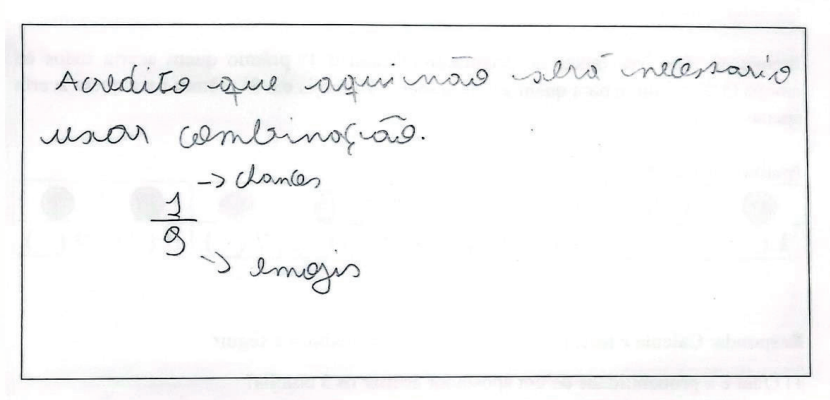 Acredito que aqui não será necessario
usar combinação.
-> chances
1
9
-> emojis